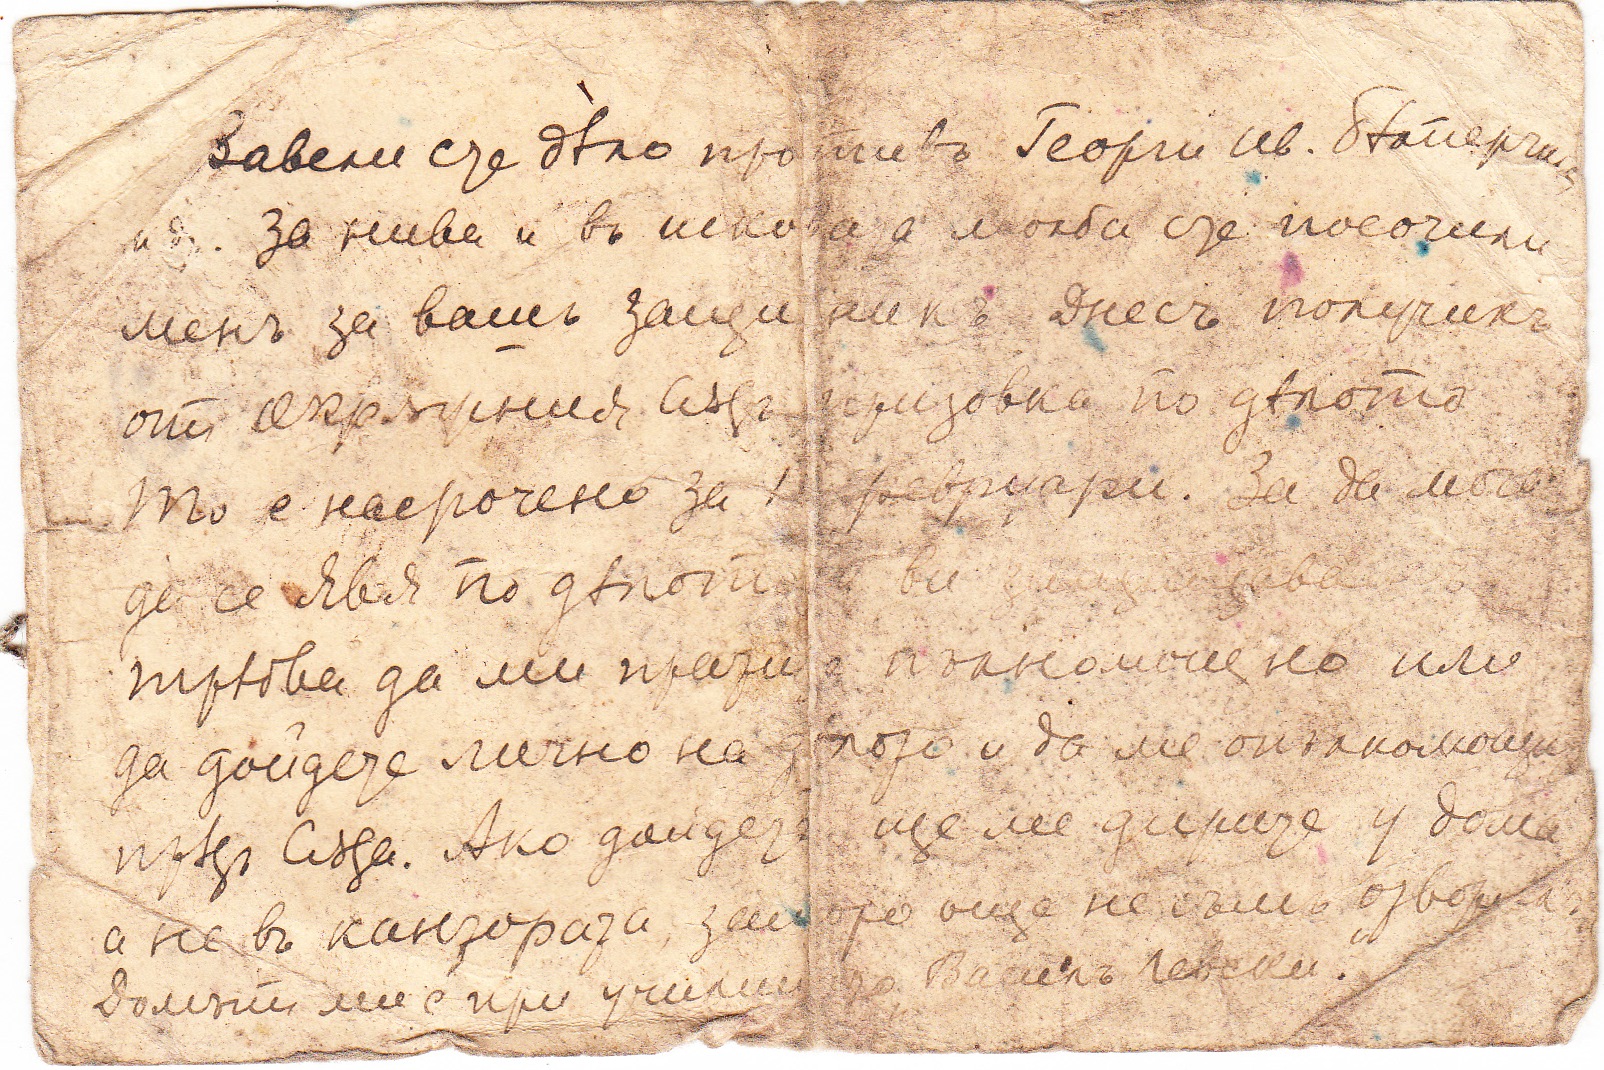 Завели сте дѣло противъ Георги Ив.
и др. за ниви и въ исковата молба сте посочили
менъ за вашъ защитникъ Днесъ получихъ
отъ Окръжния Сѫдъ призовка по дѣлото
То е насрочено за февруари. За да мога
да се явя по дѣлото и ви
трѣбва да ми пратите пълномощно или
да дойдете лично на дѣлото и да ме опълномощите
прѣдъ Сѫда. Ако дойдете ще ме дирите у дома
а не въ кантората, защото още не съмъ отворилъ.
Домътъ ми е при училище "Василъ Левски".